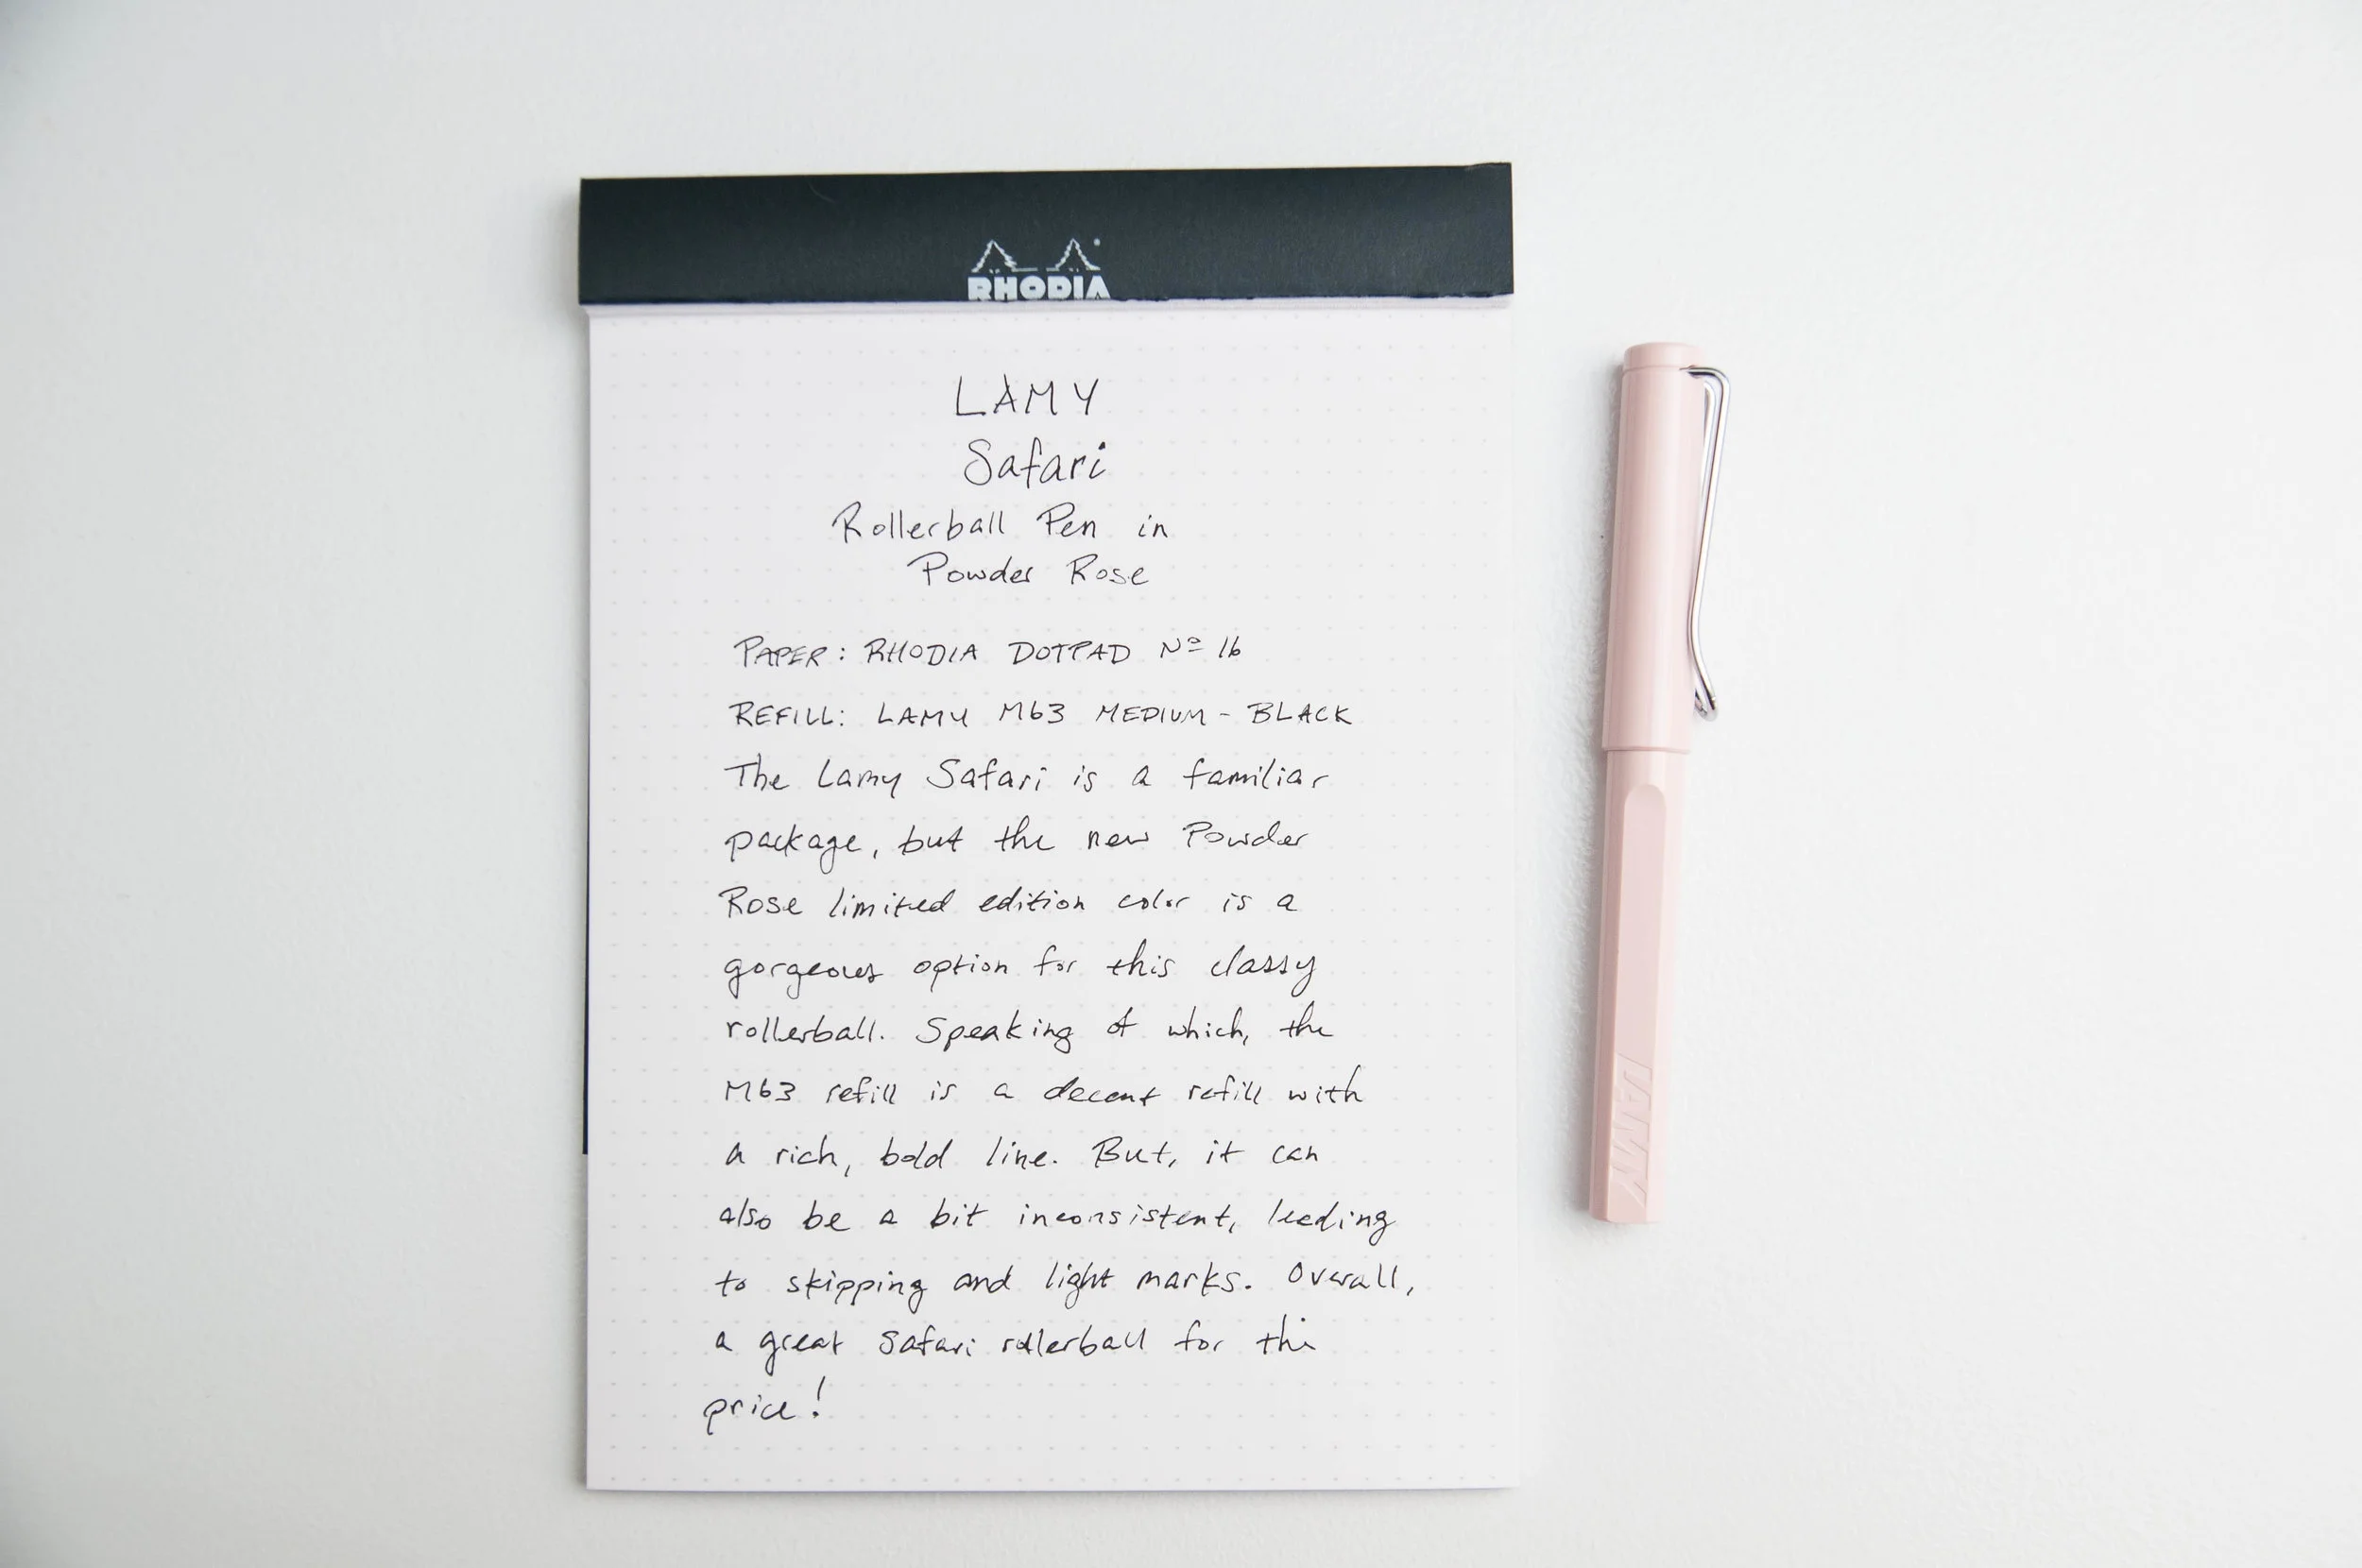 RHODIA
LAMY
Safari
Rollerball Pen in
Powder Rose
PAPER: RHODIA DOTPAD Nº 16
REFILL: LAMY M63 MEDIUM - BLACK
The Lamy Safari is a familiar
package, but the new Powder
Rose limited edition color is a
gorgeous option for this classy
rollerball. Speaking of which, the
M63 refill is a decent refill with
a rich, bold line. But, it can
also be a bit inconsistent, leading
to skipping and light marks. Overall,
a great Safari rollerball for the
price!
LAMY